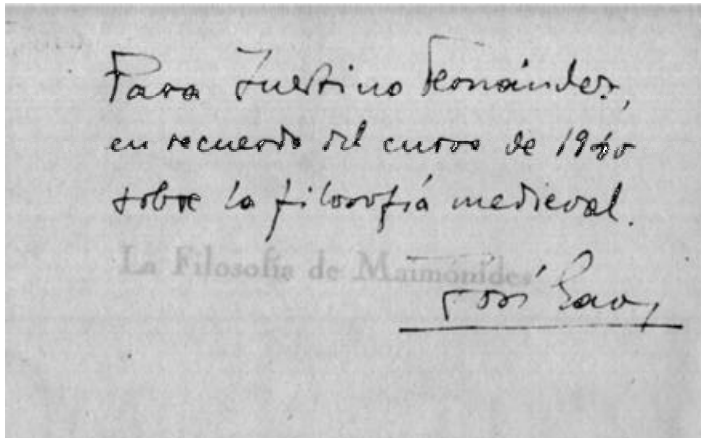 Para Justino Fernández,
en recuerdo del curso de 1940
sobre la filosofía medieval.
La Filosofía de Maimónides
José Gaos